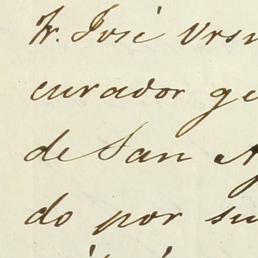 Fr. José Urs
curador ge
de San A
do por su